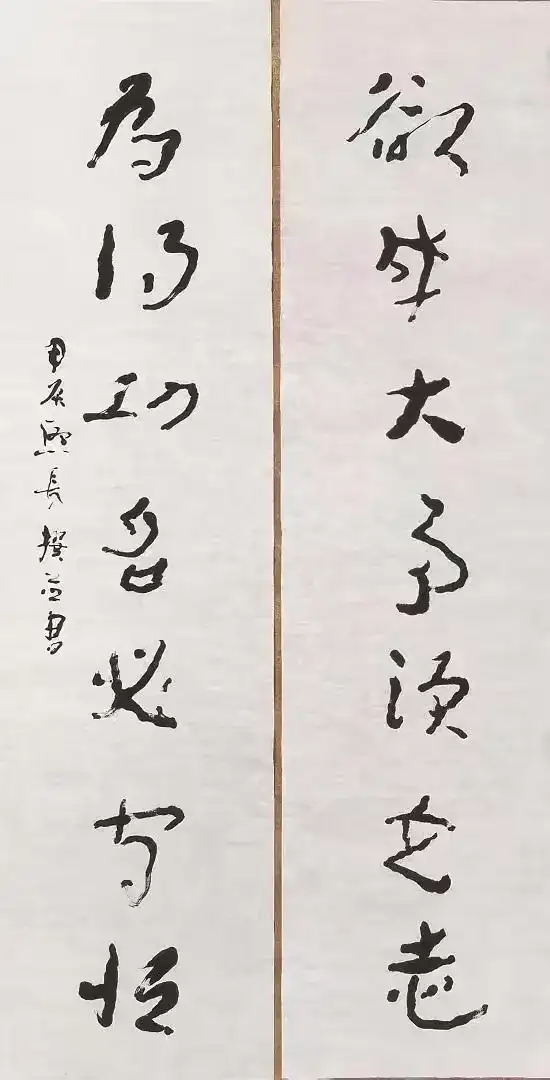 欲成大事須立志
為得功名必守恒
甲辰 長撰並書